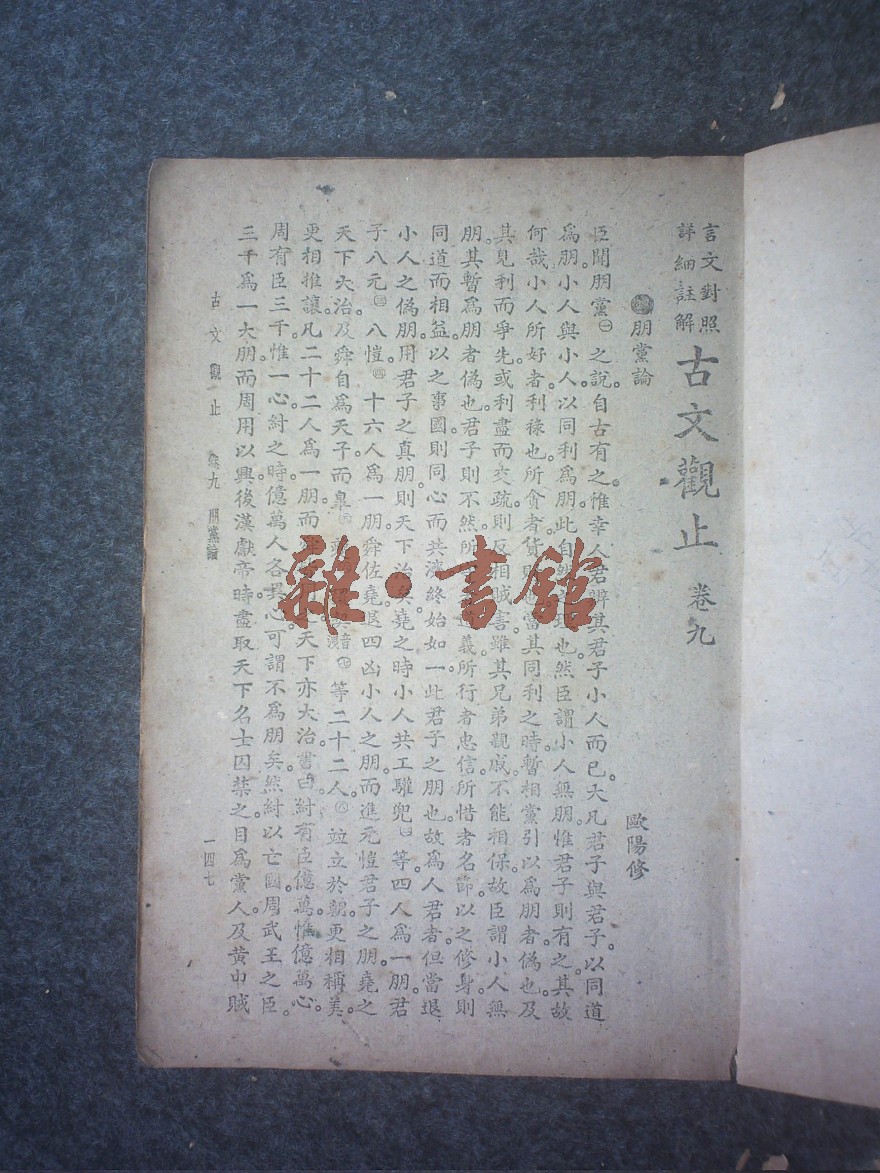 言文對照
詳細註解
古文觀止 卷九
朋黨論
歐陽修
臣聞朋黨㊀之說。自古有之。惟幸人君辨其君子小人而已。大凡君子與君子。以同道
爲朋。小人與小人。以同利爲朋。此自然 也。然臣謂小人無朋。惟君子則有之。其故
何哉。小人所好者。利祿也。所貪者。貨 也。當其同利之時。暫相黨引以爲朋者。僞也。及
其見利而爭先。或利盡而交疏。則反相賊害。雖其兄弟親戚。不能相保。故臣謂小人無
朋。其暫爲朋者僞也。君子則不然。所 義。所行者忠信。所惜者名節。以之修身。則
同道而相益。以之事國。則同心而共濟。終始如一。此君子之朋也。故爲人君者。但當退
小人之僞朋。用君子之真朋。則天下治矣。堯之時。小人共工驩兜㊁等四人爲一朋。君
子八元㊂八愷㊃十六人爲一朋。舜佐堯。退四凶小人之朋。而進元愷君子之朋。堯之
天下大治。及舜自爲天子。而皐㊄ 等二十二人㊇竝立於朝。更相稱美。
更相推讓。凡二十二人爲一朋。而 天下亦大治。書曰。紂有臣億萬。惟億萬心。
周有臣三千。惟一心。紂之時。億萬人各異心。可謂不爲朋矣。然紂以亡國。周武王之臣。
三千爲一大朋。而周用以興。後漢獻帝時。盡取天下名士囚禁之。目爲黨人。及黃巾賊
古文觀止 卷九 朋黨論
一四七
雜·書館